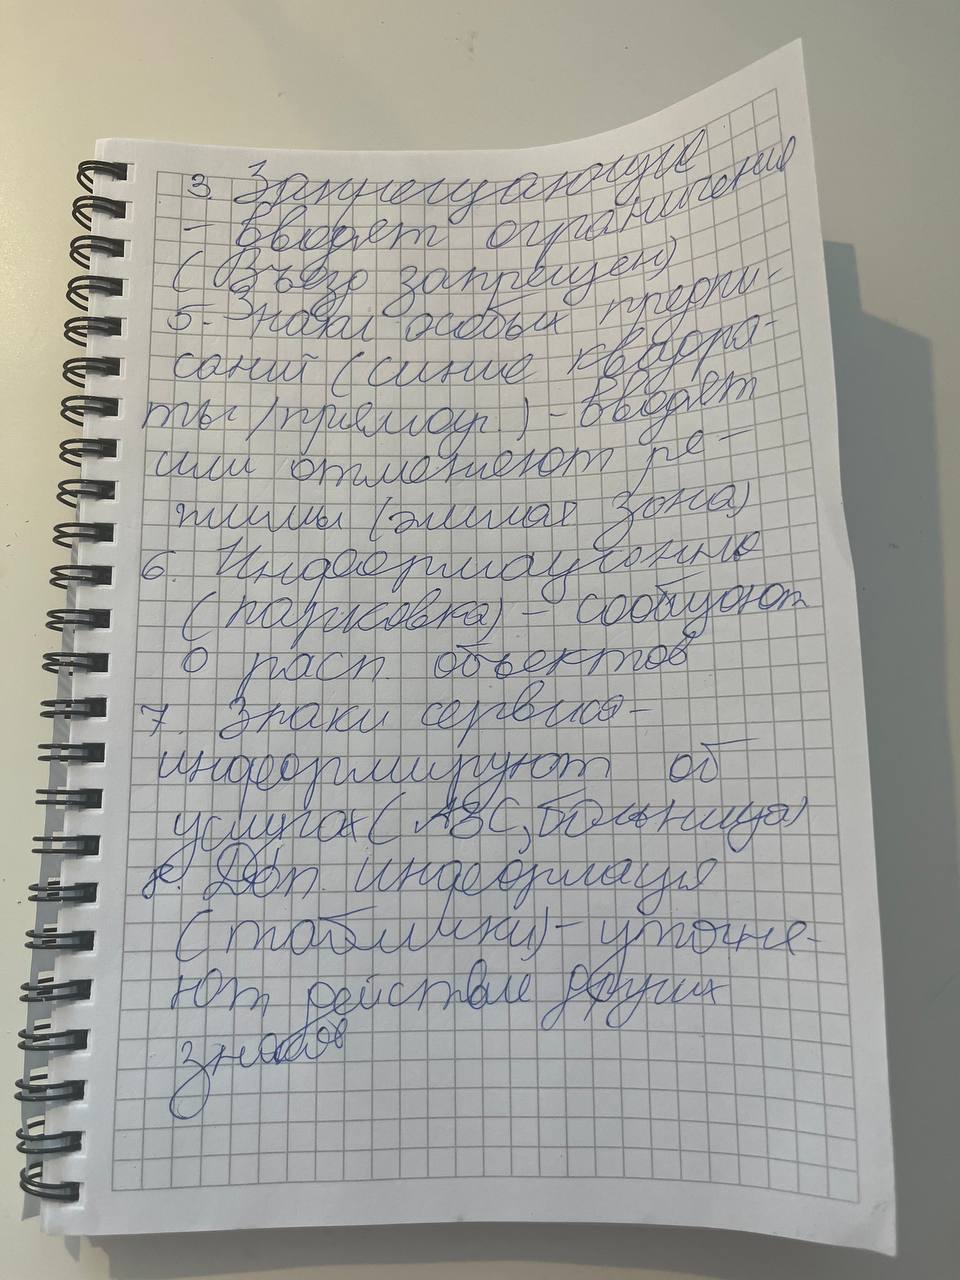 3. Запрещающие
- Вводят ограничения
(Въезд запрещен)
5. Знаки особых предпи-
саний (синие квадра-
ты/прямоуг.) - Вводят
или отменяют ре-
жимы (жилая зона)
6. Информационно
(парковка) - сообщают
о расп. объектов
7. Знаки сервиса -
информируют об
услугах (АЗС, больница)
8. Доп. информация
(таблички) - уточня-
ют действие других
знаков